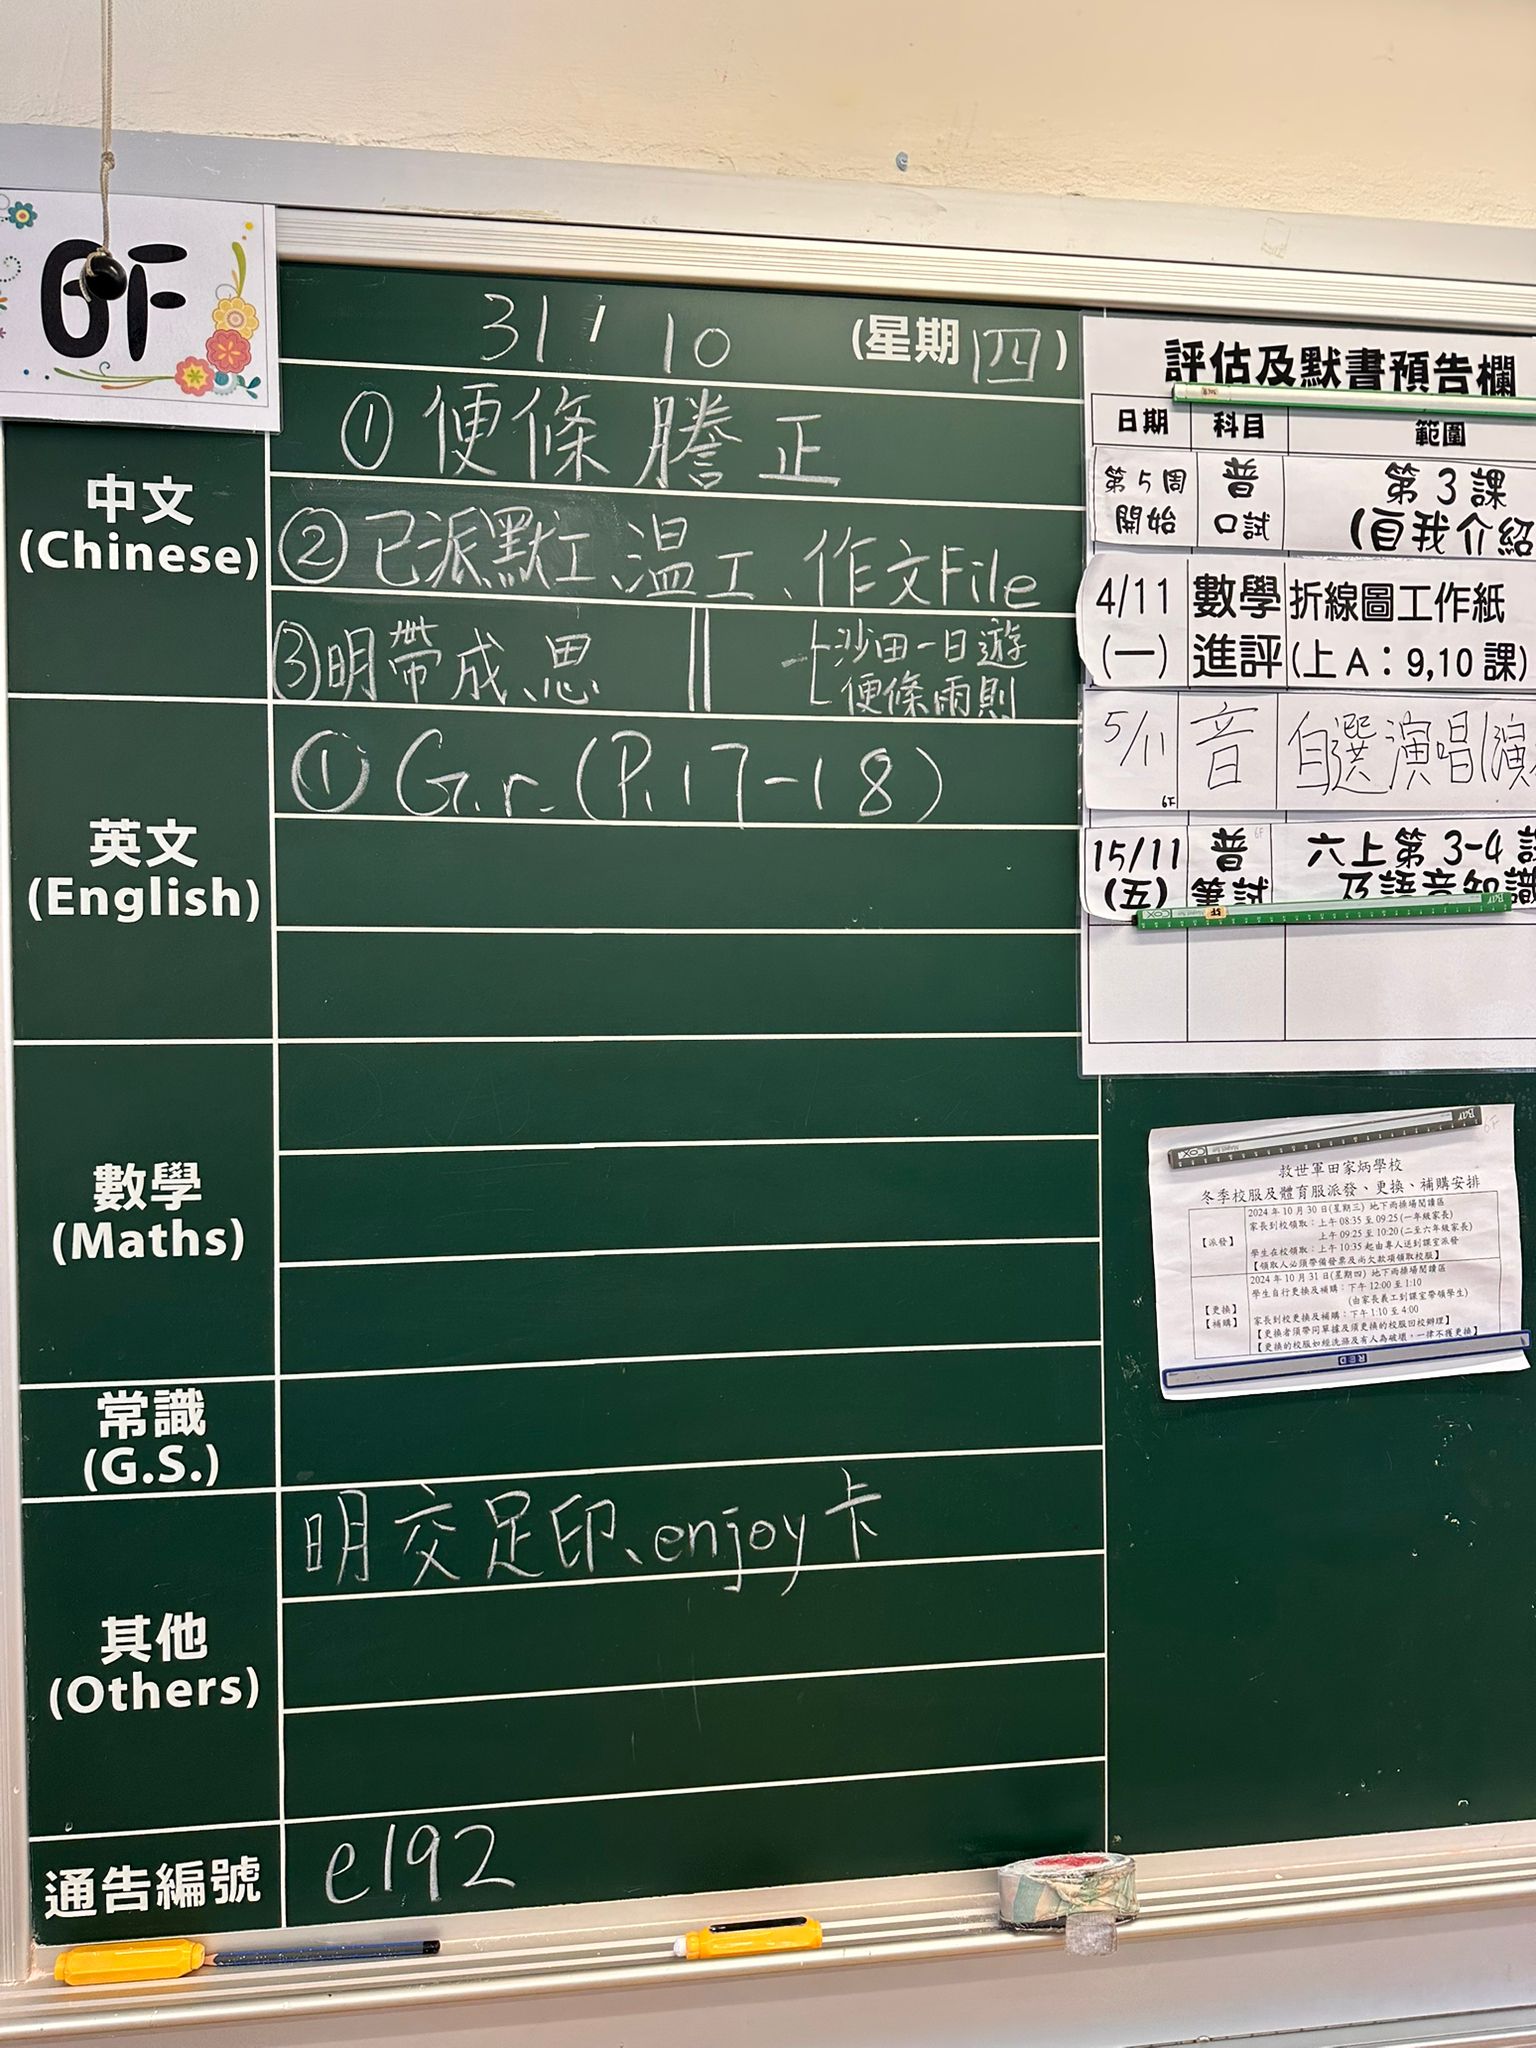 6F
31 / 10 (星期四)
中文
(Chinese)
① 便條謄正
② 已派默工、溫工、作文File
③ 明帶成、思
沙田一日遊
便條兩則
英文
(English)
① G.r. (P.17-18)
數學
(Maths)
常識
(G.S.)
其他
(Others)
明交足印、enjoy卡
通告編號
e192
評估及默書預告欄
日期 科目 範圍
第5周 普 第3課
開始 口試 (自我介紹
4/11 數學 折線圖工作紙
(一) 進評 (上A:9,10課)
5/11 音 自選演唱/演
6F
15/11 普 六上第3-4
(五) 筆試 及語音知識
6F
救世軍田家炳學校
冬季校服及體育服派發、更換、補購安排
【派發】
2024年10月30日(星期三) 地下雨操場閱讀區
家長到校領取:上午08:35至09:25(一年級家長)
上午09:25至10:20(二至六年級家長)
學生在校領取:上午10:35起由專人送到課室派發
【領取人必須帶備發票及尚欠款項領取校服】
【更換】
【補購】
2024年10月31日(星期四) 地下雨操場閱讀區
學生自行更換及補購:下午12:00至1:10
(由家長義工到課室帶領學生)
家長到校更換及補購:下午1:10至4:00
【更換者須帶同單據及須更換的校服回校辦理】
【更換的校服如經洗滌及有人為破壞,一律不獲更換】